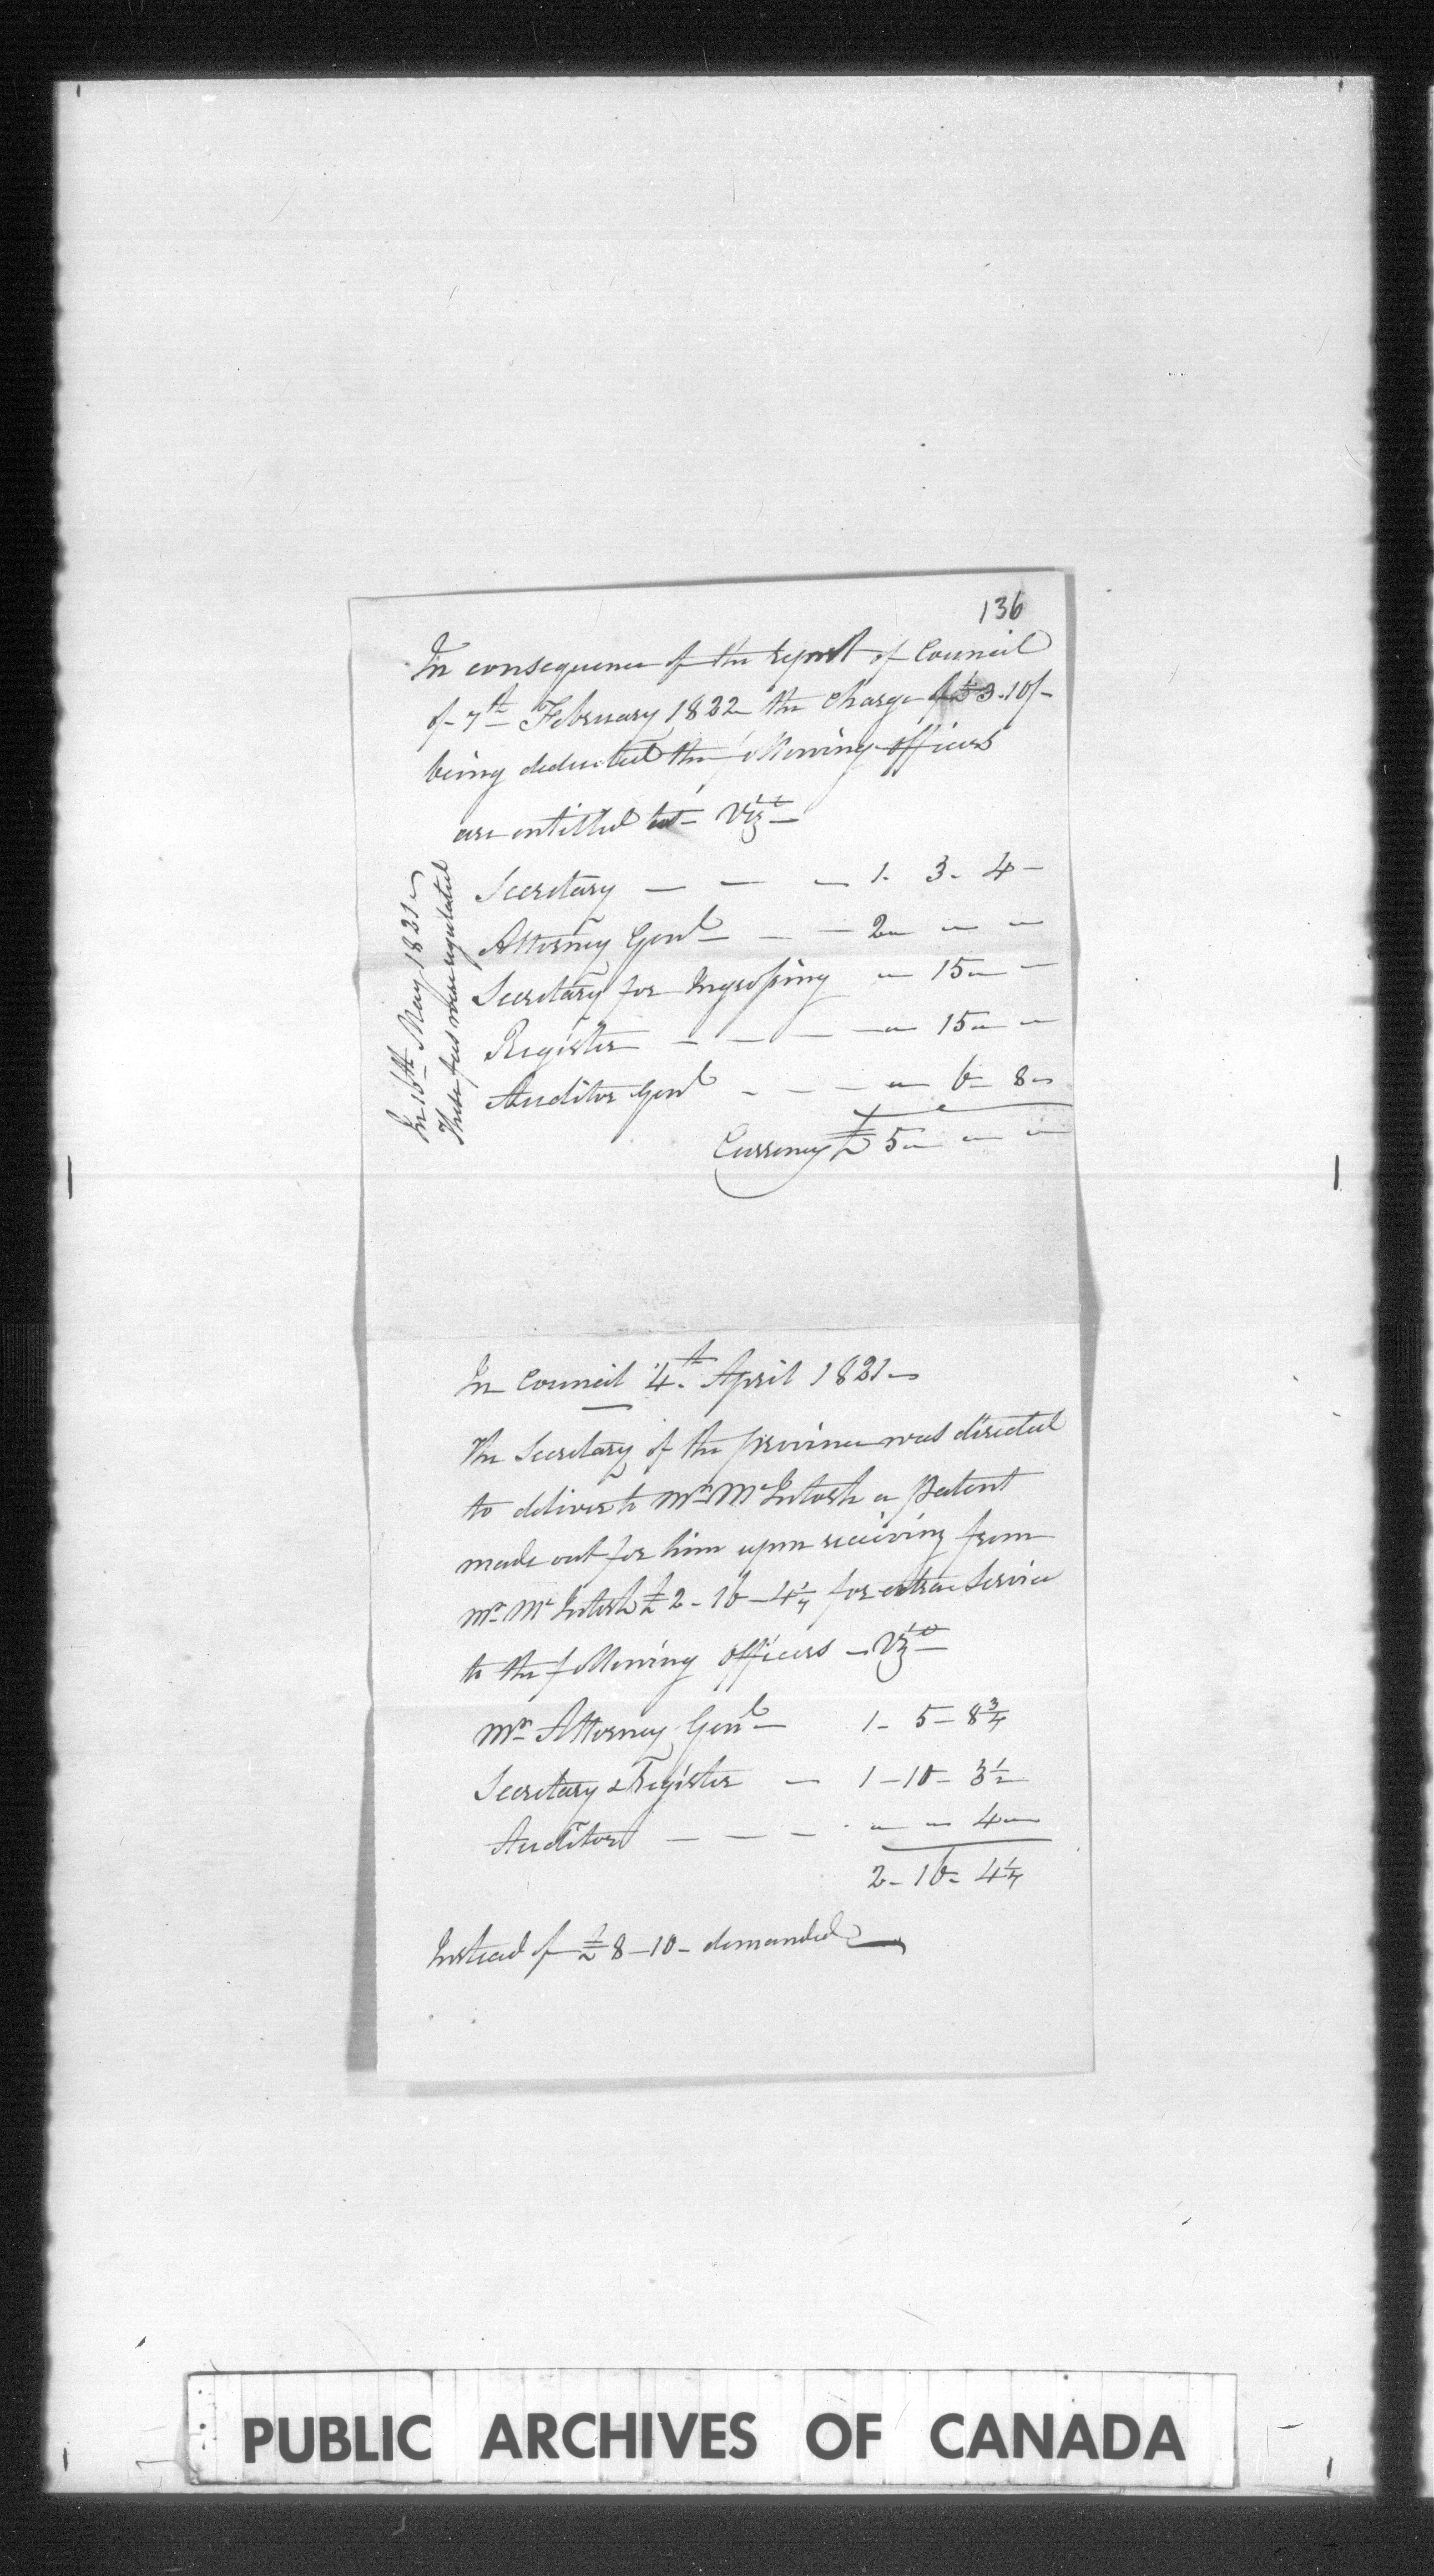 136
In consequence of the report of Council
of 7th February 1822 the charge of £3.10/-
being deducted the following officers
are entitled to Vizt
In 16th May 1821
These fees were regulated
Secretary — — — 1. 3. 4
Attorney Genl — — 2 " "
Secretary for Ingrossing " 15 " "
Register — — — " 15 " "
Auditor Genl - — — " 6 8
Currency £ 5 " " "
In Council 4th April 1821
The Secretary of the province was directed
to deliver to Mr McIntosh a patent
made out for him upon receiving from
Mr McIntosh £2-16-4¼ for extra service
to the following officers — Vizt
Mr Attorney Genl 1-5-8¾
Secretary & Register — 1-10-3½
Auditor — — — " " 4 "
2-16-4¼
Instead of £8-10- demanded
PUBLIC ARCHIVES OF CANADA